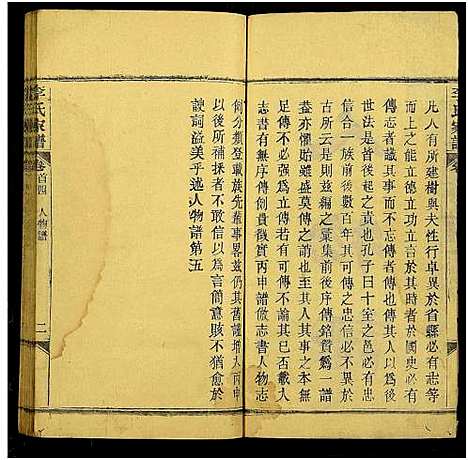 凡人有所建樹與夫性行卓異於省縣必有志等
而上之能立德立功立言於其時者於國史必有
傳志者識其事而不忘傳者傳其人以為後
世法是後起之責也孔子曰十室之邑必有忠
信合一族前後數百年其可傳之忠信必不異於
古所云是則茲編之彙集前後序傳銘贊為一譜
蓋亦懼始雖盛莫傳之於其人其事之本無
足傳不必強為立傳於其間丙申譜已否載入
志書年遠無序傳創貴徵實丙申譜倣志書人物志
例分類登載族先輩事畧茲仍其舊增入丙申
以後所採擇者不敢信以為言簡意賅不猶愈於
諛詞溢美乎述人物譜第五
李氏家譜
卷首四
人物譜
二
李氏家譜
卷